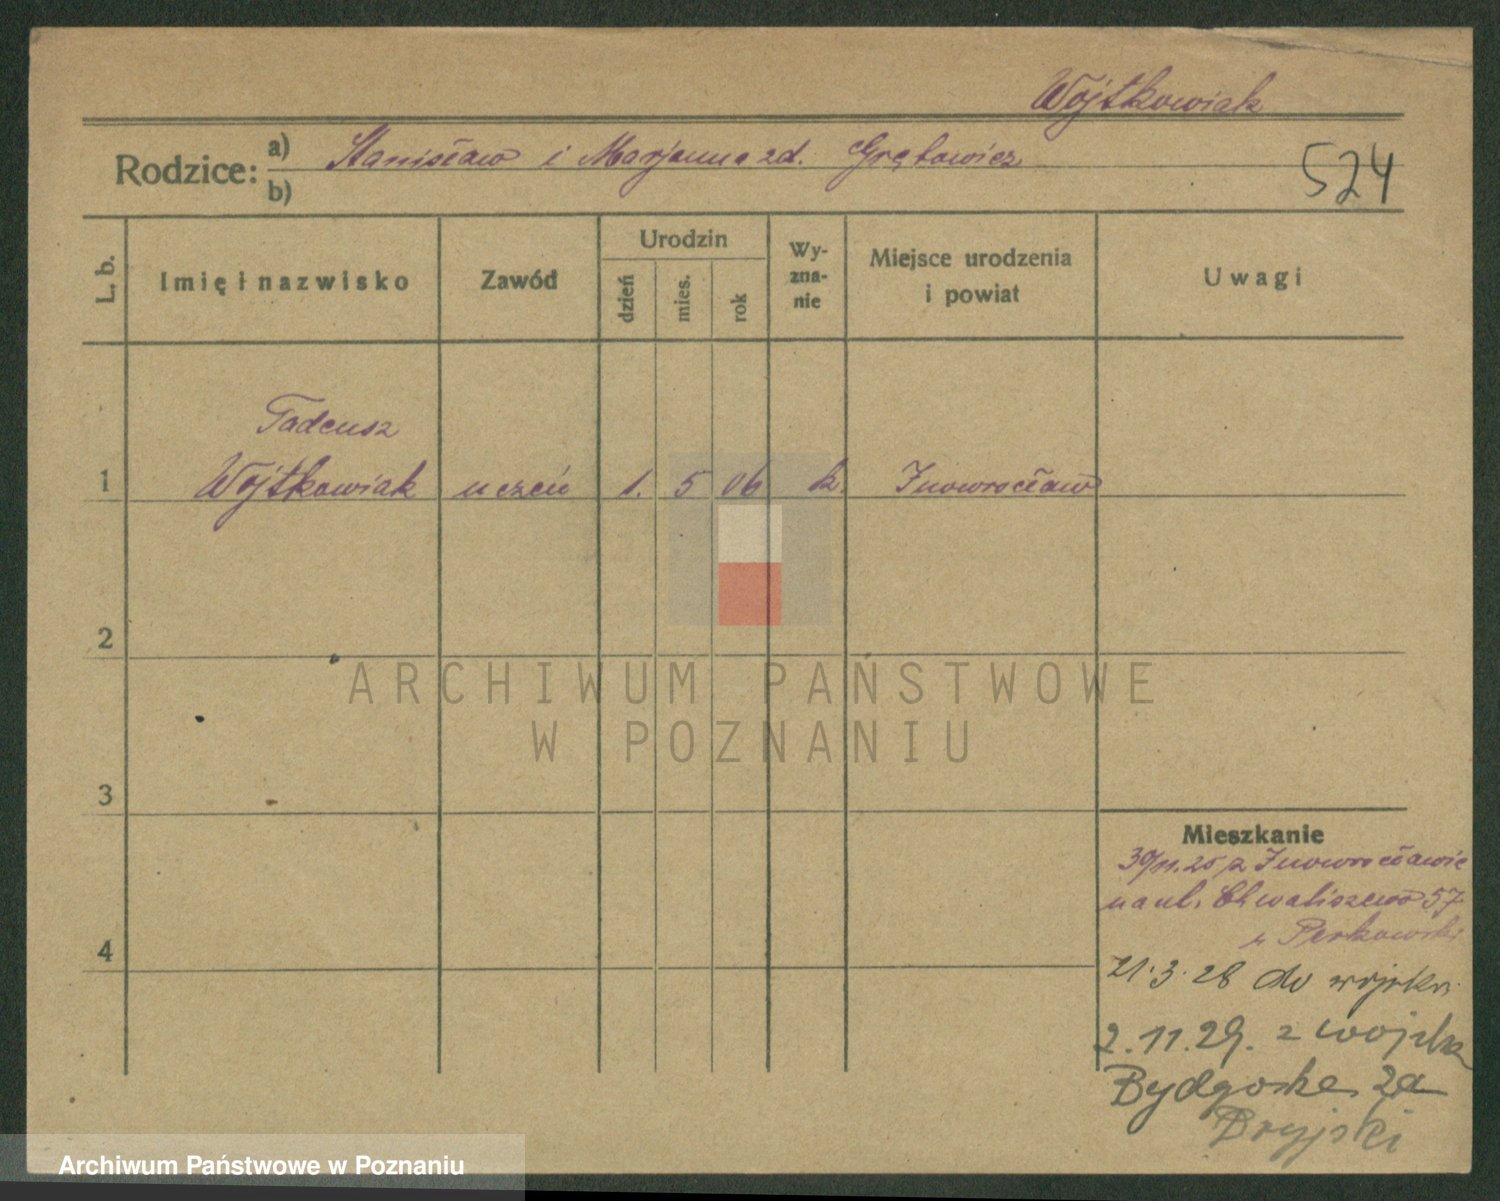 Wojtkowiak
Rodzice: a) Stanisław i Marjanna zd.
b)
524
L. b.
Imię i nazwisko
Zawód
Urodzin
dzień
mies.
rok
Wy-
zna-
nie
Miejsce urodzenia
i powiat
Uwagi
Tadeusz
1 Wojtkowiak uczeń 1. 5 06 k. Inowrocław
2
3
4
Mieszkanie
30/11.25 z Inowrocławia
na ul. Chwaliszewo 57
u Perkowski
21.3.28 do wojska
2.11.29. z wojska
Bydgoska 2a
Dryjski
ARCHIWUM PAŃSTWOWE
W POZNANIU
Archiwum Państwowe w Poznaniu